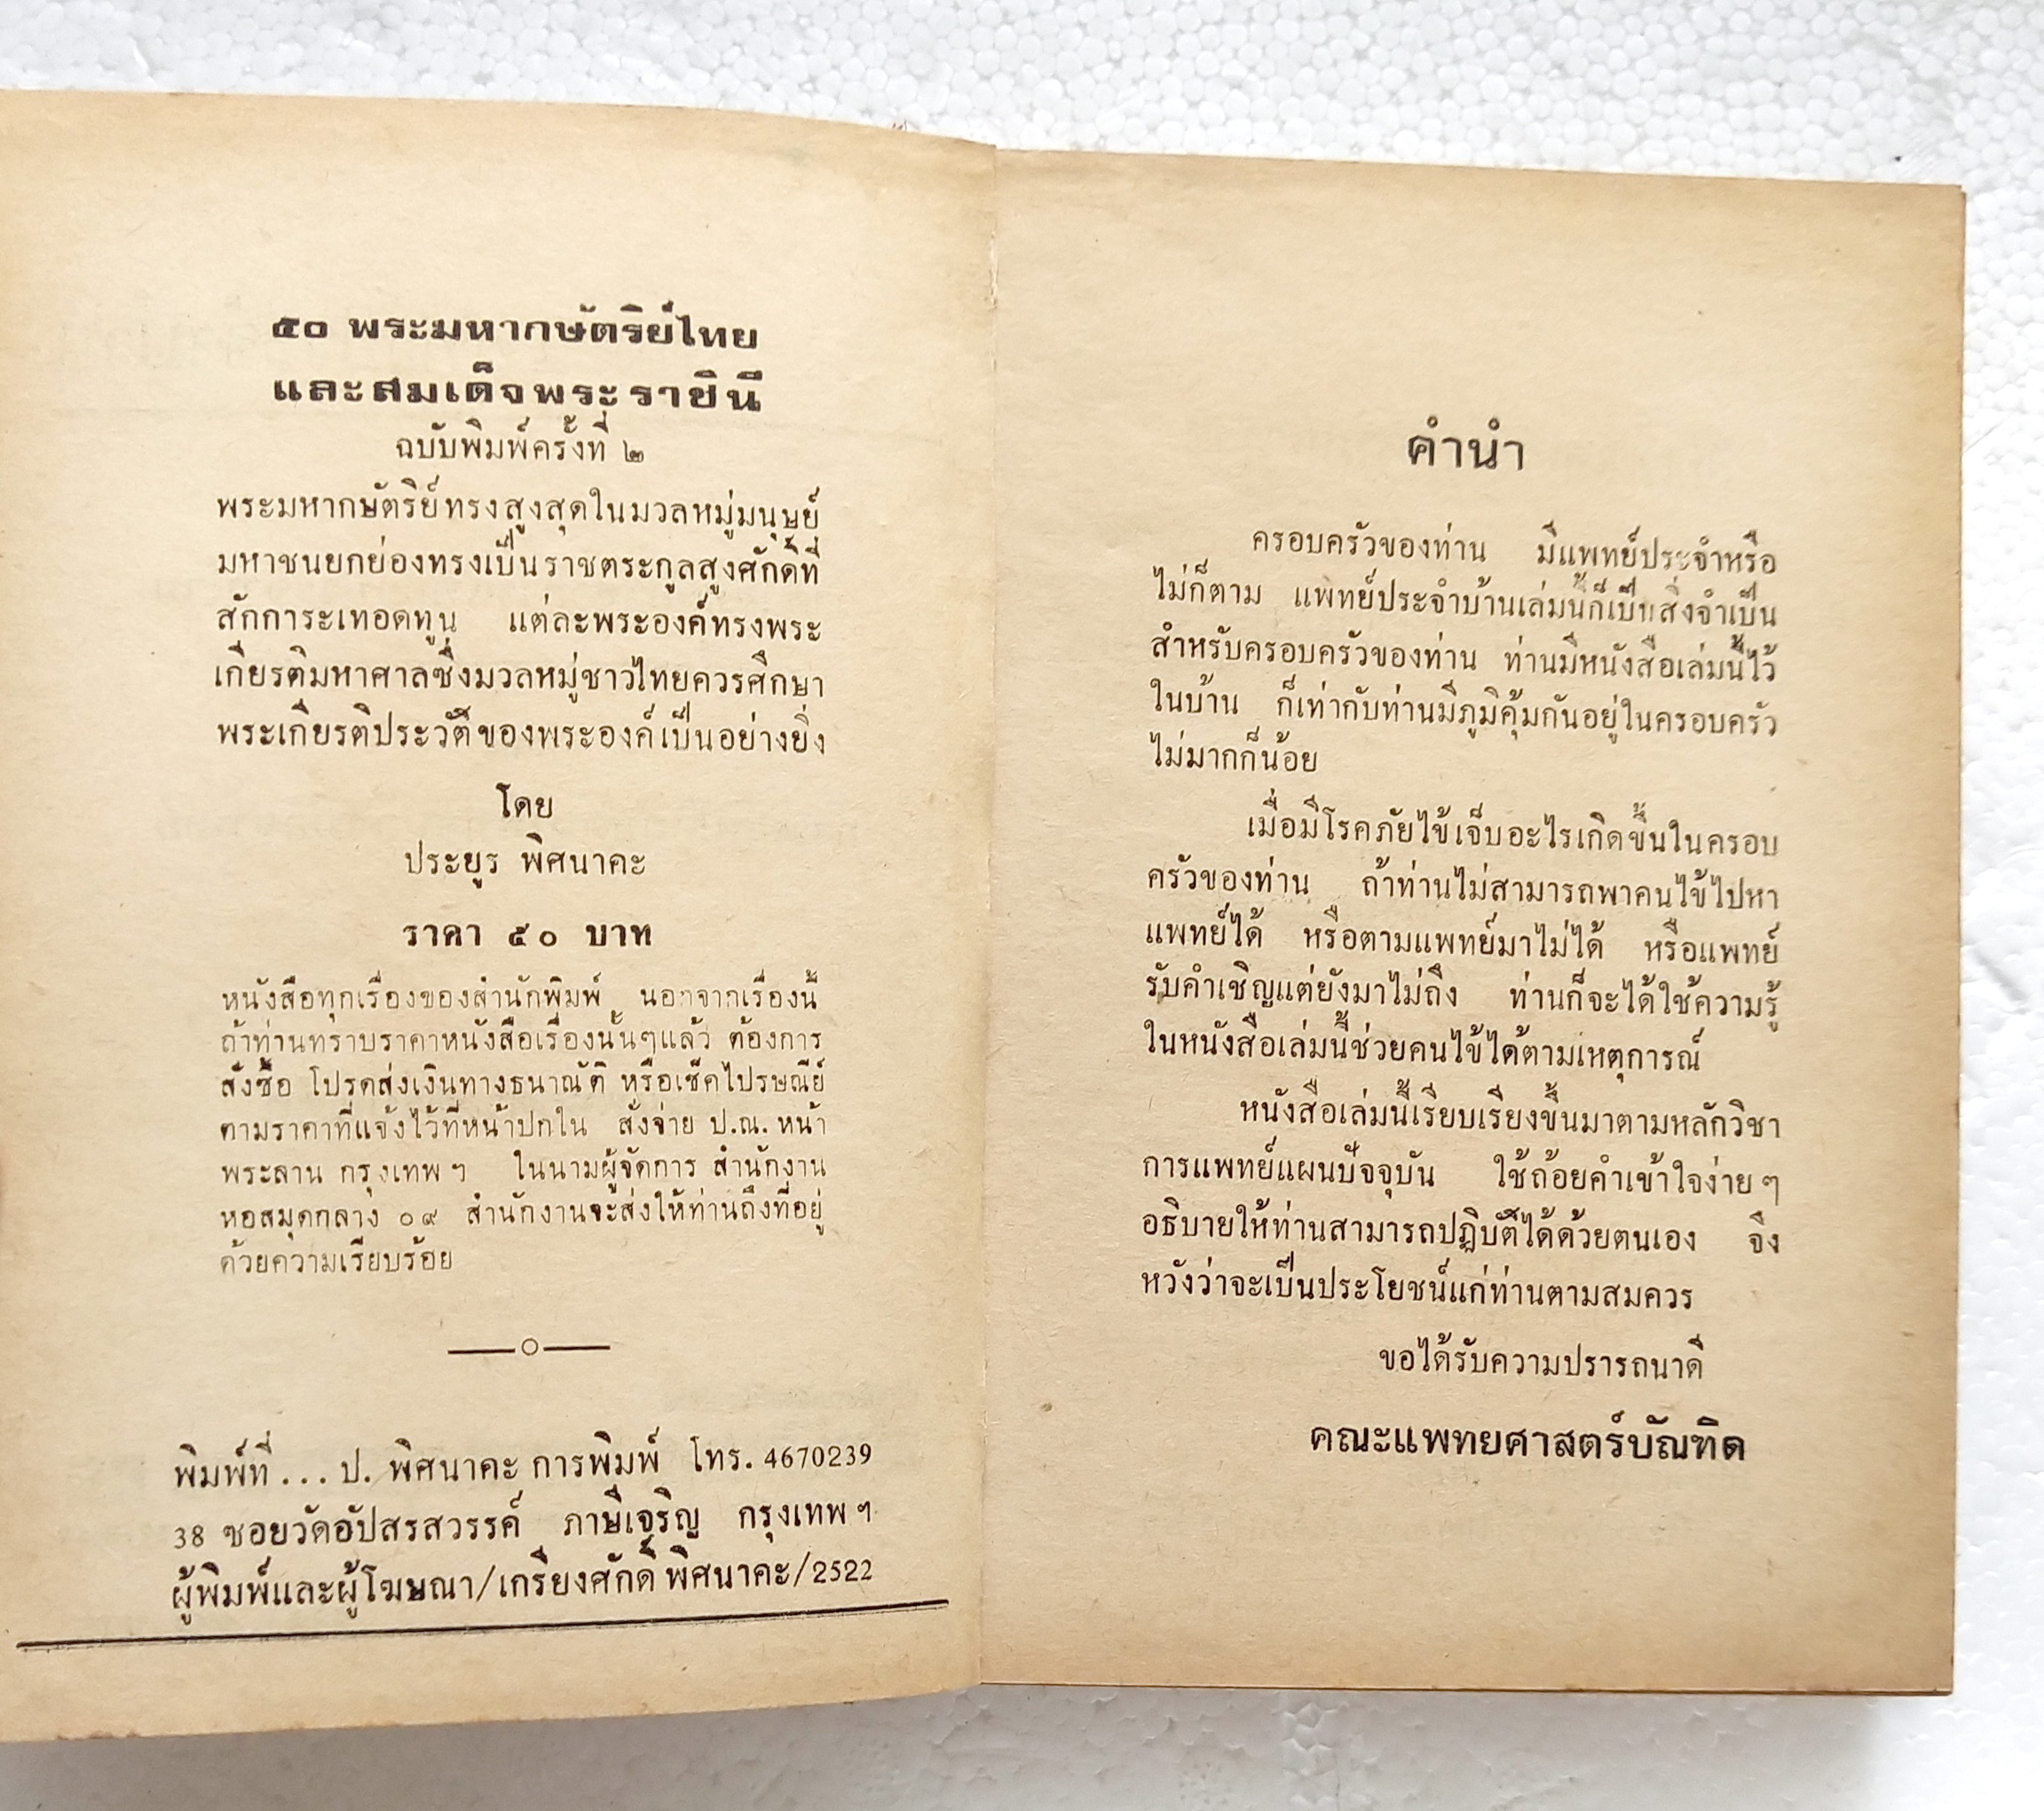 ๕๐ พระมหากษัตริย์ไทย
และสมเด็จพระราชินี
ฉบับพิมพ์ครั้งที่ ๒
พระมหากษัตริย์ทรงสูงสุดในมวลหมู่มนุษย์
มหาชนยกย่องทรงเป็นราชตระกูลสูงศักดิ์ที่
สักการะเทอดทูน แต่ละพระองค์ทรงพระ
เกียรติมหาศาลซึ่งมวลหมู่ชาวไทยควรศึกษา
พระเกียรติประวัติของพระองค์เป็นอย่างยิ่ง
โดย
ประยูร พิศนาคะ
ราคา ๕๐ บาท
หนังสือทุกเรื่องของสำนักพิมพ์ นอกจากเรื่องนี้
ถ้าท่านทราบราคาหนังสือเรื่องนั้นๆแล้ว ต้องการ
สั่งซื้อ โปรดส่งเงินทางธนาณัติ หรือเช็คไปรษณีย์
ตามราคาที่แจ้งไว้ที่หน้าปกใน สั่งจ่าย ป.ณ. หน้า
พระลาน กรุงเทพฯ ในนามผู้จัดการ สำนักงาน
หอสมุดกลาง ๐๙ สำนักงานจะส่งให้ท่านถึงที่อยู่
ด้วยความเรียบร้อย
พิมพ์ที่ ... ป. พิศนาคะ การพิมพ์ โทร. 4670239
38 ซอยวัดอัปสรสวรรค์ ภาษีเจริญ กรุงเทพ ฯ
ผู้พิมพ์และผู้โฆษณา/เกรียงศักดิ์ พิศนาคะ/2522
คำนำ
ครอบครัวของท่าน มีแพทย์ประจำหรือ
ไม่ก็ตาม แพทย์ประจำบ้านเล่มนี้ก็เป็นสิ่งจำเป็น
สำหรับครอบครัวของท่าน ท่านมีหนังสือเล่มนี้ไว้
ในบ้าน ก็เท่ากับท่านมีภูมิคุ้มกันอยู่ในครอบครัว
ไม่มากก็น้อย
เมื่อมีโรคภัยไข้เจ็บอะไรเกิดขึ้นในครอบ
ครัวของท่าน ถ้าท่านไม่สามารถพาคนไข้ไปหา
แพทย์ได้ หรือตามแพทย์มาไม่ได้ หรือแพทย์
รับคำเชิญแต่ยังมาไม่ถึง ท่านก็จะได้ใช้ความรู้
ในหนังสือเล่มนี้ช่วยคนไข้ได้ตามเหตุการณ์
หนังสือเล่มนี้เรียบเรียงขึ้นมาตามหลักวิชา
การแพทย์แผนปัจจุบัน ใช้ถ้อยคำเข้าใจง่าย ๆ
อธิบายให้ท่านสามารถปฏิบัติได้ด้วยตนเอง จึง
หวังว่าจะเป็นประโยชน์แก่ท่านตามสมควร
ขอได้รับความปรารถนาดี
คณะแพทยศาสตร์บัณฑิต